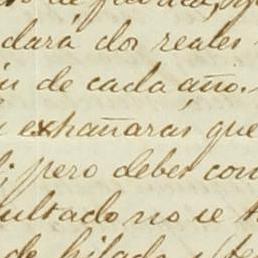 dará dos reales
de cada año.
extrañarás que
pero debes con
ultado no se
de hilado